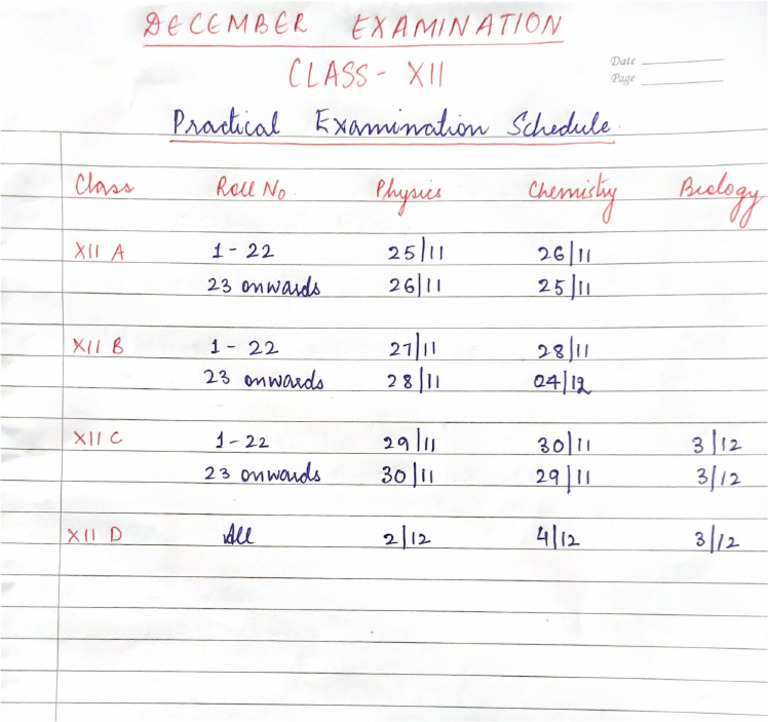 DECEMBER EXAMINATION
CLASS - XII
Date
Page
Practical Examination Schedule.
Class Roll No. Physics Chemistry Biology
XII A 1 - 22 25/11 26/11
23 onwards 26/11 25/11
XII B 1 - 22 27/11 28/11
23 onwards 28/11 04/12
XII C 1 - 22 29/11 30/11 3/12
23 onwards 30/11 29/11 3/12
XII D All 2/12 4/12 3/12